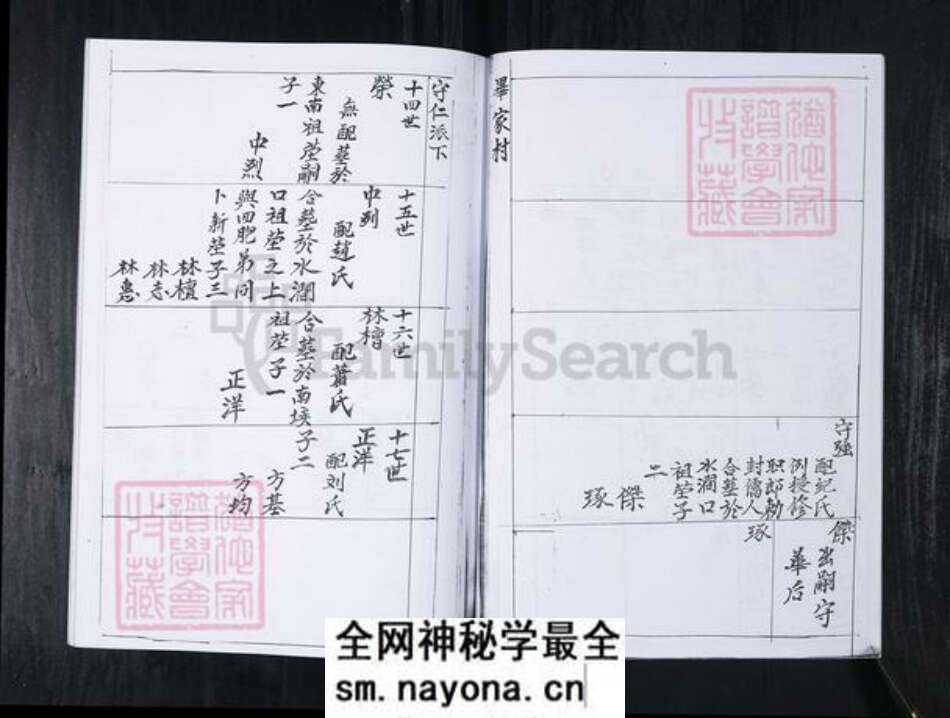 畢家村
守強
配紀氏
例授修
职郎勅
封儒人
合墓於
水澗口
祖塋子
二
傑
琢
傑
出嗣守
華后
琢
守仁派下
十四世
榮
無配墓於
東南祖塋嗣
子一
中烈
十五世
中烈
配趙氏
合墓於水澗
口祖塋之上
與四肥弟同
卜新塋子三
林檀
林志
林惠
十六世
林檀
配蕭氏
合墓於南埃
祖塋子一
正洋
十七世
正洋
配刘氏
子二
方基
方均
猶他家
譜學會
收藏
猶他家
譜學會
收藏
FamilySearch
全网神秘学最全
sm.nayona.cn